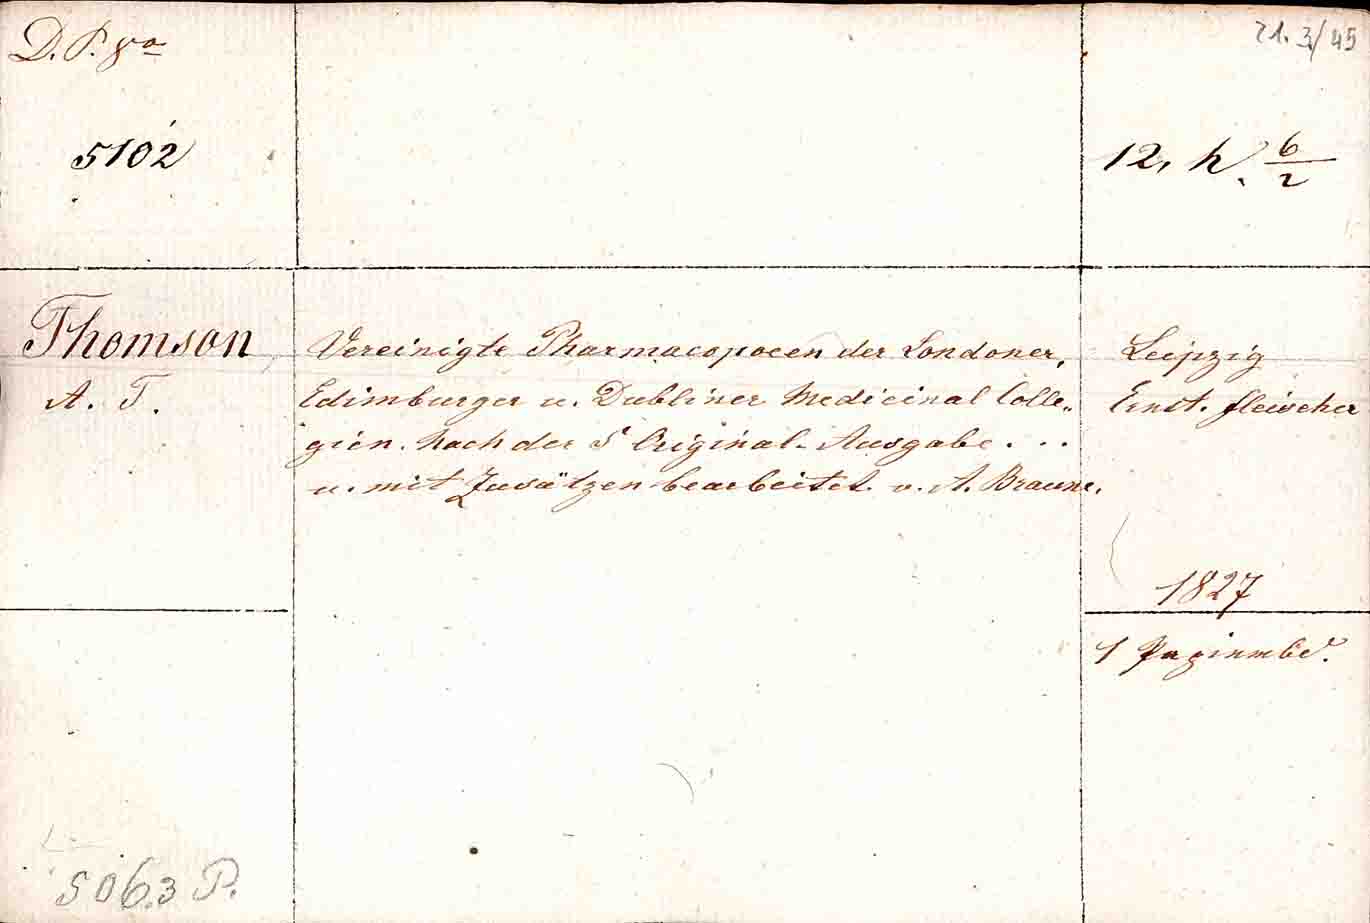 D. P. 8o
21. 3/45
5102
12, h. 6/2
Thomson
A. T.
Vereinigte Pharmacopoeen der Londoner,
Edimburger u. Dubliner Medicinal Colle„
gien. Nach der 5t Original-Ausgabe . . .
u. mit Zusätzen bearbeitet. v. A. Braune.
Leipzig
Ernst. fleischer
1827
1
5063 P.